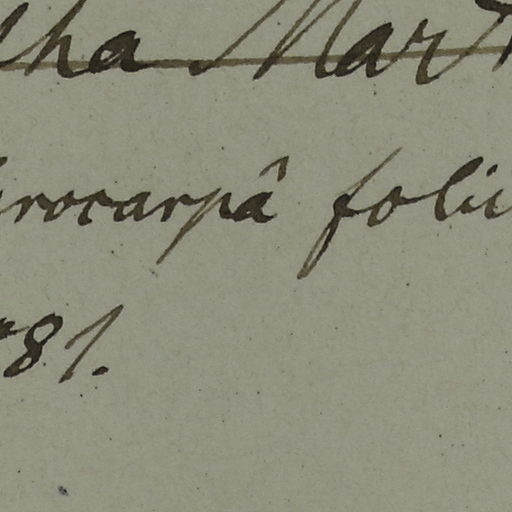 ha Mart
rocarpâ folii
81.